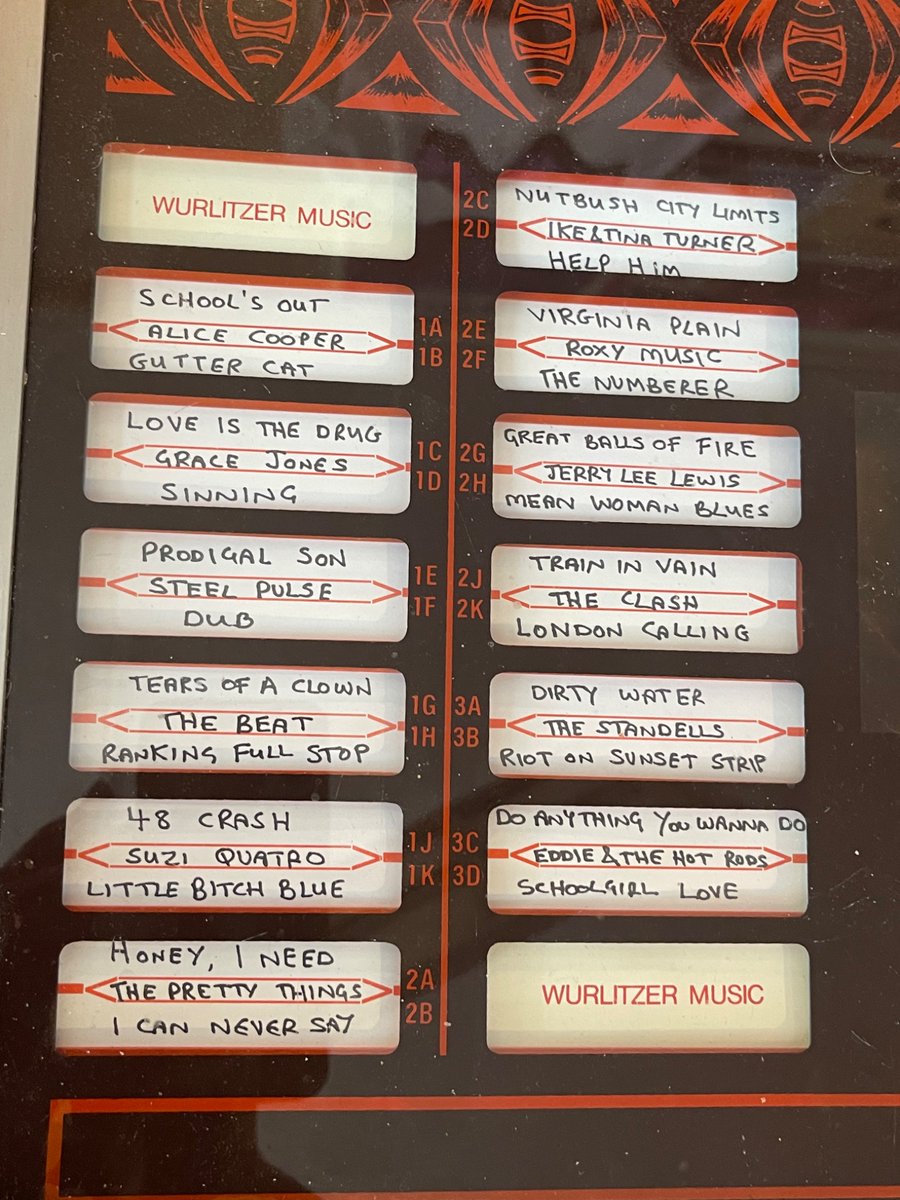 WURLITZER MUSIC
SCHOOL'S OUT
ALICE COOPER
GUTTER CAT
1A
1B
LOVE IS THE DRUG
GRACE JONES
SINNING
1C
1D
PRODIGAL SON
STEEL PULSE
DUB
1E
1F
TEARS OF A CLOWN
THE BEAT
RANKING FULL STOP
1G
1H
48 CRASH
SUZI QUATRO
LITTLE BITCH BLUE
1J
1K
HONEY, I NEED
THE PRETTY THINGS
I CAN NEVER SAY
2A
2B
2C
2D
NUTBUSH CITY LIMITS
IKE & TINA TURNER
HELP HIM
2E
2F
VIRGINIA PLAIN
ROXY MUSIC
THE NUMBERER
2G
2H
GREAT BALLS OF FIRE
JERRY LEE LEWIS
MEAN WOMAN BLUES
2J
2K
TRAIN IN VAIN
THE CLASH
LONDON CALLING
3A
3B
DIRTY WATER
THE STANDELLS
RIOT ON SUNSET STRIP
3C
3D
DO ANYTHING YOU WANNA DO
EDDIE & THE HOT RODS
SCHOOLGIRL LOVE
WURLITZER MUSIC